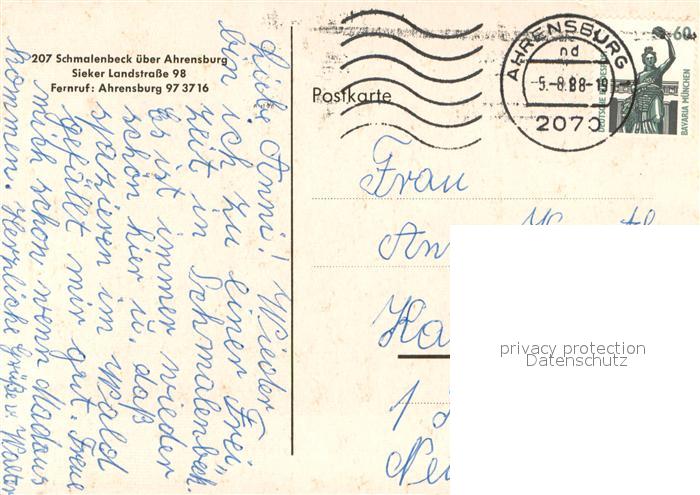 207 Schmalenbeck über Ahrensburg
Sieker Landstraße 98
Fernruf: Ahrensburg 97 3716
Postkarte
AHRENSBURG
nd
5.-8.88-15
2070
60
DEUTSCHE BUNDESPOST
BAVARIA MÜNCHEN
Liebe Anni! Wieder
bin ich zu einer Frei
zeit in Schmalenbek.
Es ist immer wieder
schön hier u. daß
spazieren im Wald
gefällt mir gut. Freue
mich schon wenn Madaus
kommen. Herzliche Grüße v. Walter
Frau
An
Ha
1
Neu
privacy protection
Datenschutz